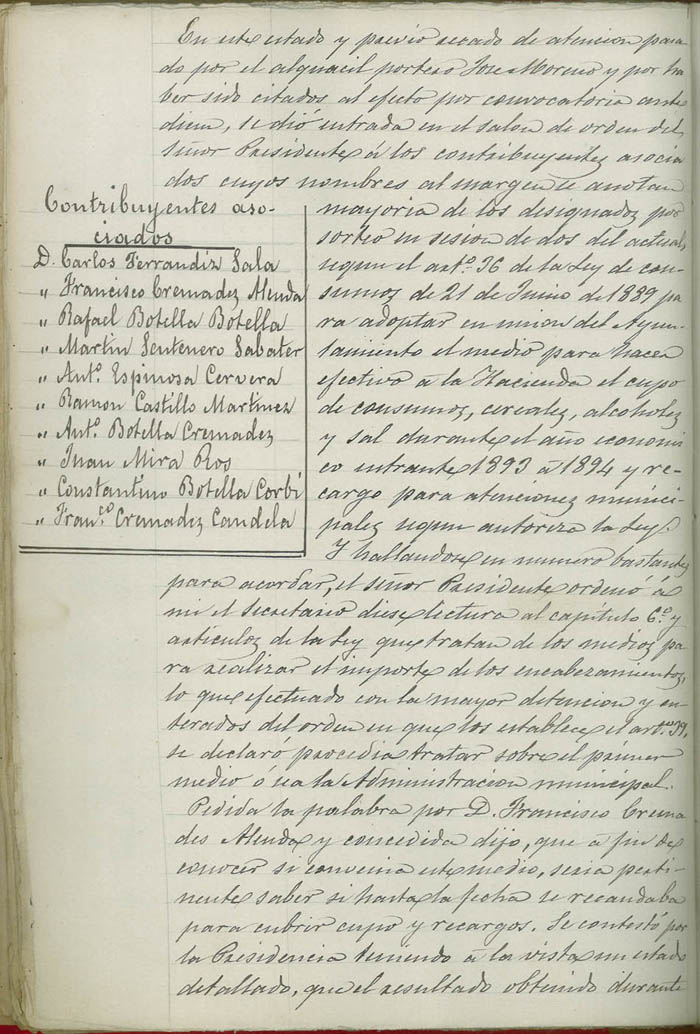 En este estado y previo recado de atencion pasa
do por el alguacil portero Jose Moreno y por ha
ber sido citados al efecto por convocatoria ante
diem, se dió entrada en el salon de orden del
Señor Presidente á los contribuyentes asocia
dos cuyos nombres al margen se anotan
Contribuyentes aso-
ciados
D. Carlos Ferrandiz Sala
„ Francisco Cremadez Alenda
„ Rafael Botella Botella
„ Martin Sentenero Sabater
„ Ant.º Espinosa Cervera
„ Ramon Castillo Martinez
„ Ant.º Botella Cremadez
„ Juan Mira Ros
„ Constantino Botella Corbi
„ Fran.co Cremadez Candela
mayoria de los designados por
sorteo en sesion de dos del actual,
segun el art.º 36 de la Ley de con-
sumos de 21 de Junio de 1889 pa
ra adoptar en union del Ayun-
tamiento el medio para hacer
efectivo á la Hacienda el cupo
de consumos, cereales, alcoholes
y sal durante el año economi
co entrante 1893 á 1894 y re-
cargo para atenciones munici-
pales segun autoriza la Ley.
Y hallandose en numero bastante
para acordar, el señor Presidente ordenó á
mi el Secretario diese lectura al capitulo 6.º y
articulos de la Ley que tratan de los medios pa
ra realizar el importe de los encabezamientos,
lo que efectuado con la mayor detencion y en-
terados del orden en que los establece el art.º 39,
se declaró procedia tratar sobre el primer
medio ó sea la Administracion municipal.
Pedida la palabra por D. Francisco Crema
des Alenda y concedida dijo, que á fin de
conocer si convenia este medio, seria perti-
nente saber si hasta la fecha se recaudaba
para cubrir cupo y recargos. Se contestó por
la Presidencia teniendo á la vista un estado
detallado, que el resultado obtenido durante